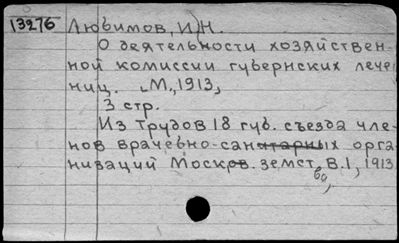 13276 Любимов, И.Н.
О деятельности хозяйствен-
ной комиссии губернских лече
ниц. М., 1913,
3 стр.
Из Трудов 18 губ. съезда чле-
нов врачебно-санитарных орга
низаций Москов. земст, В.1, 1913
ва,